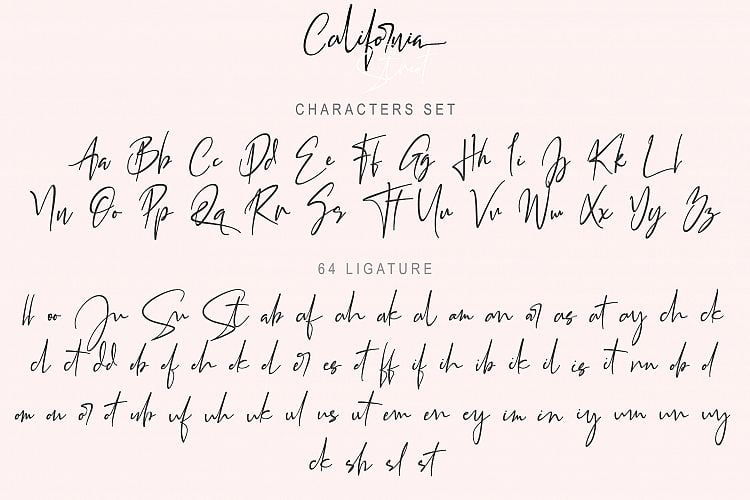 California
Street
CHARACTERS SET
Aa Bb Cc Dd Ee Ff Gg Hh Ii Jj Kk Ll
Nn Oo Pp Qq Rr Ss Tt Uu Vv Ww Xx Yy Zz
64 LIGATURE
ll oo Ju Su St ab af ah ak al am an or as at ay ch ck
cl ct dd eb ef eh ek el er es et ff if ih ib ik il is it nn ob ol
om on or ot ub uf uh uk ul us ut em en ey im in iy um un uy
ck sh sl st